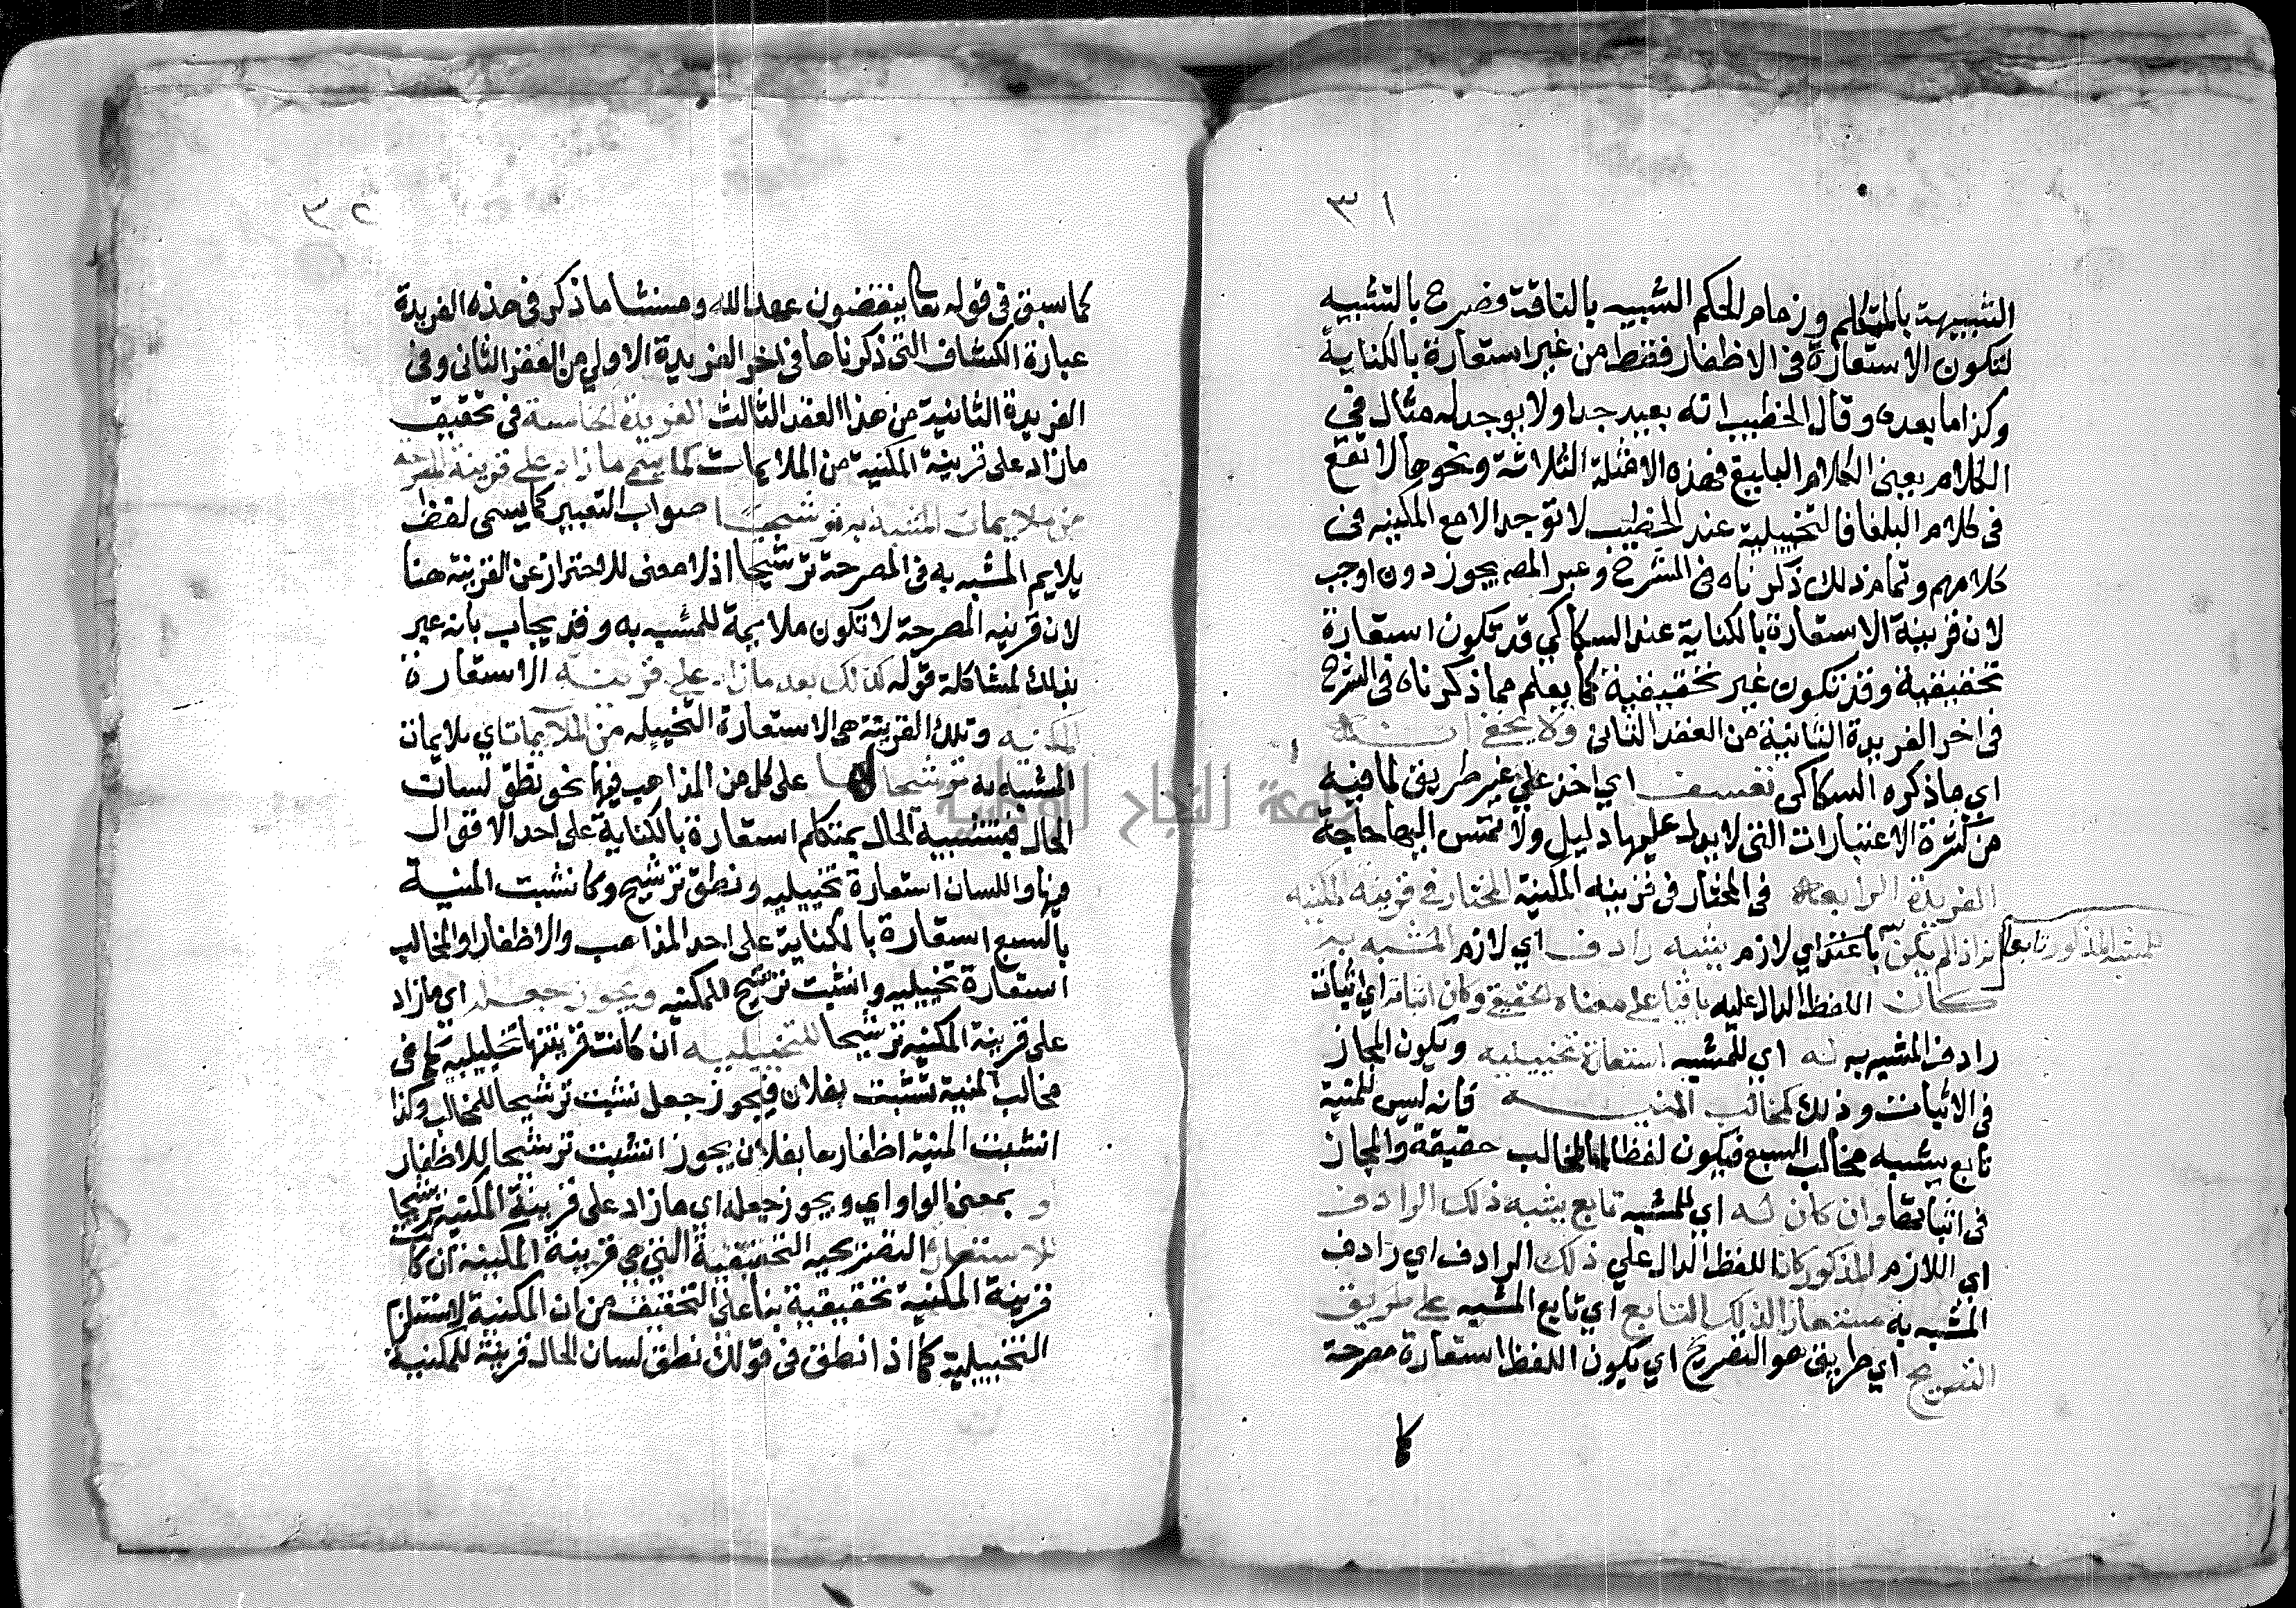 ٣١
الشبيهة بالمتكلم وزمام الحكم الشبيه بالناقة وصرح بالتشبيه
لتكون الاستعارة في الاظفار فقط من غير استعارة بالكناية
وكذا ما بعده وقال الخطيب انه بعيد جدا ولا يوجد له مثال في
الكلام يعني الكلام البليغ فهذه الامثلة الثلاثة ونحوها لا تقع
في كلام البلغا فالتخييلية عند الخطيب لا توجد الا مع المكنيه في
كلامهم وتمام ذلك ذكرناه في الشرح وعبر المصـ بيجوز دون اوجب
لان قرينة الاستعارة بالكناية عند السكاكي قد تكون استعارة
تحقيقية وقد تكون غير تحقيقية كما يعلم مما ذكرناه في الشرح
في اخر الفريدة الثانية من العقد الثاني ولا يخفى انـــه
اي ما ذكره السكاكي تعسف اي اخذ علي غير طريق لما فيه
من كثرة الاعتبارات التي لا يدل عليها دليل ولا تمس اليها حاجة
الفريدة الرابعة في المختار في قرينه المكنية المختار في قرينه المكنيه
انه اذا لم يكن للمشبه المذكور تابع اي لازم يشبه رادف اي لازم المشبه به
كان اللفظ الدال عليه باقيا على معناه الحقيقي وكان اثباته اي اثبات
رادف المشبه به له اي للمشبه استعارة تخييلية ويكون المجاز
في الاثبات وذلك كمخالب المنيـــه فانه ليس للمنية
تابع يشبه مخالب السبع فيكون لفظ المخالب حقيقة والمجاز
في اثباتها وان كان له اي للمشبه تابع يشبه ذلك الرادف
اي اللازم المذكور كان اللفظ الدال علي ذلك الرادف اي رادف
المشبه به مستعارا لذلك التابع اي تابع المشبه على طريق
التصريح اي طريق هو التصريح اي يكون اللفظ استعارة مصرحة
كما
٣٢
كما سبق في قوله تعا ينقضون عهد الله ومنشا ما ذكر في هذه الفريدة
عبارة الكشاف التي ذكرناها في اخر الفريدة الاولي من العقد الثاني وفي
الفريدة الثانية من هذا العقد الثالث الفريدة الخامسة في تحقيق
ما زاد على قرينة المكنية من الملايمات كما يسمى ما زاد على قرينة المصرحة
من ملايمات المشبه به ترشيحا صواب التعبير كما يسمى لفظ
يلايم المشبه به في المصرحة ترشيحا اذ لا معنى للاحتراز عن القرينة هنا
لان قرينه المصرحة لا تكون ملايمة للمشبه به وقد يجاب بانه عبر
بذلك لمشاكلة قوله كذلك يعد ما زاد على قرينــه الاستعارة
المكنيه وتلك القرينة هي الاستعارة التخييليه من الملايمات اي ملايمات
المشبه به ترشيحا لها على كل من المذاهب فيها نحو نطق لسان
الحال فتشبيه الحال بمتكلم استعارة بالكناية على احد الاقوال
فيها واللسان استعارة تخييليه ونطق ترشيح وكانشبت المنية
بالسبع استعارة بالكناية على احد المذاهب والاظفار او المخالب
استعارة تخييليه وانشبت ترشيح للمكنيه ويجوز جعله اي ما زاد
على قرينة المكنيه ترشيحا للتخييليــه ان كانت قرينتها تخييلية كما في
مخالب المنية نشبت بفلان فيجوز جعل نشبت ترشيحا للمخالب وكذا
انشبت المنية اظفارها بفلان يجوز انشبت ترشيحا للاظفار
و بمعنى الواو اي ويجوز جعله اي ما زاد على قرينة المكنيه ترشيحا
للاستعارة التصريحيه التحقيقية التي هي قرينة المكنية ان كانت
قرينة المكنية تحقيقية بنا على التحقيق من ان المكنية لا تستلزم
التخييلية كما اذا نطق في قولك نطق لسان الحال قرينة للمكنية
جامعة النجاح الوطنية